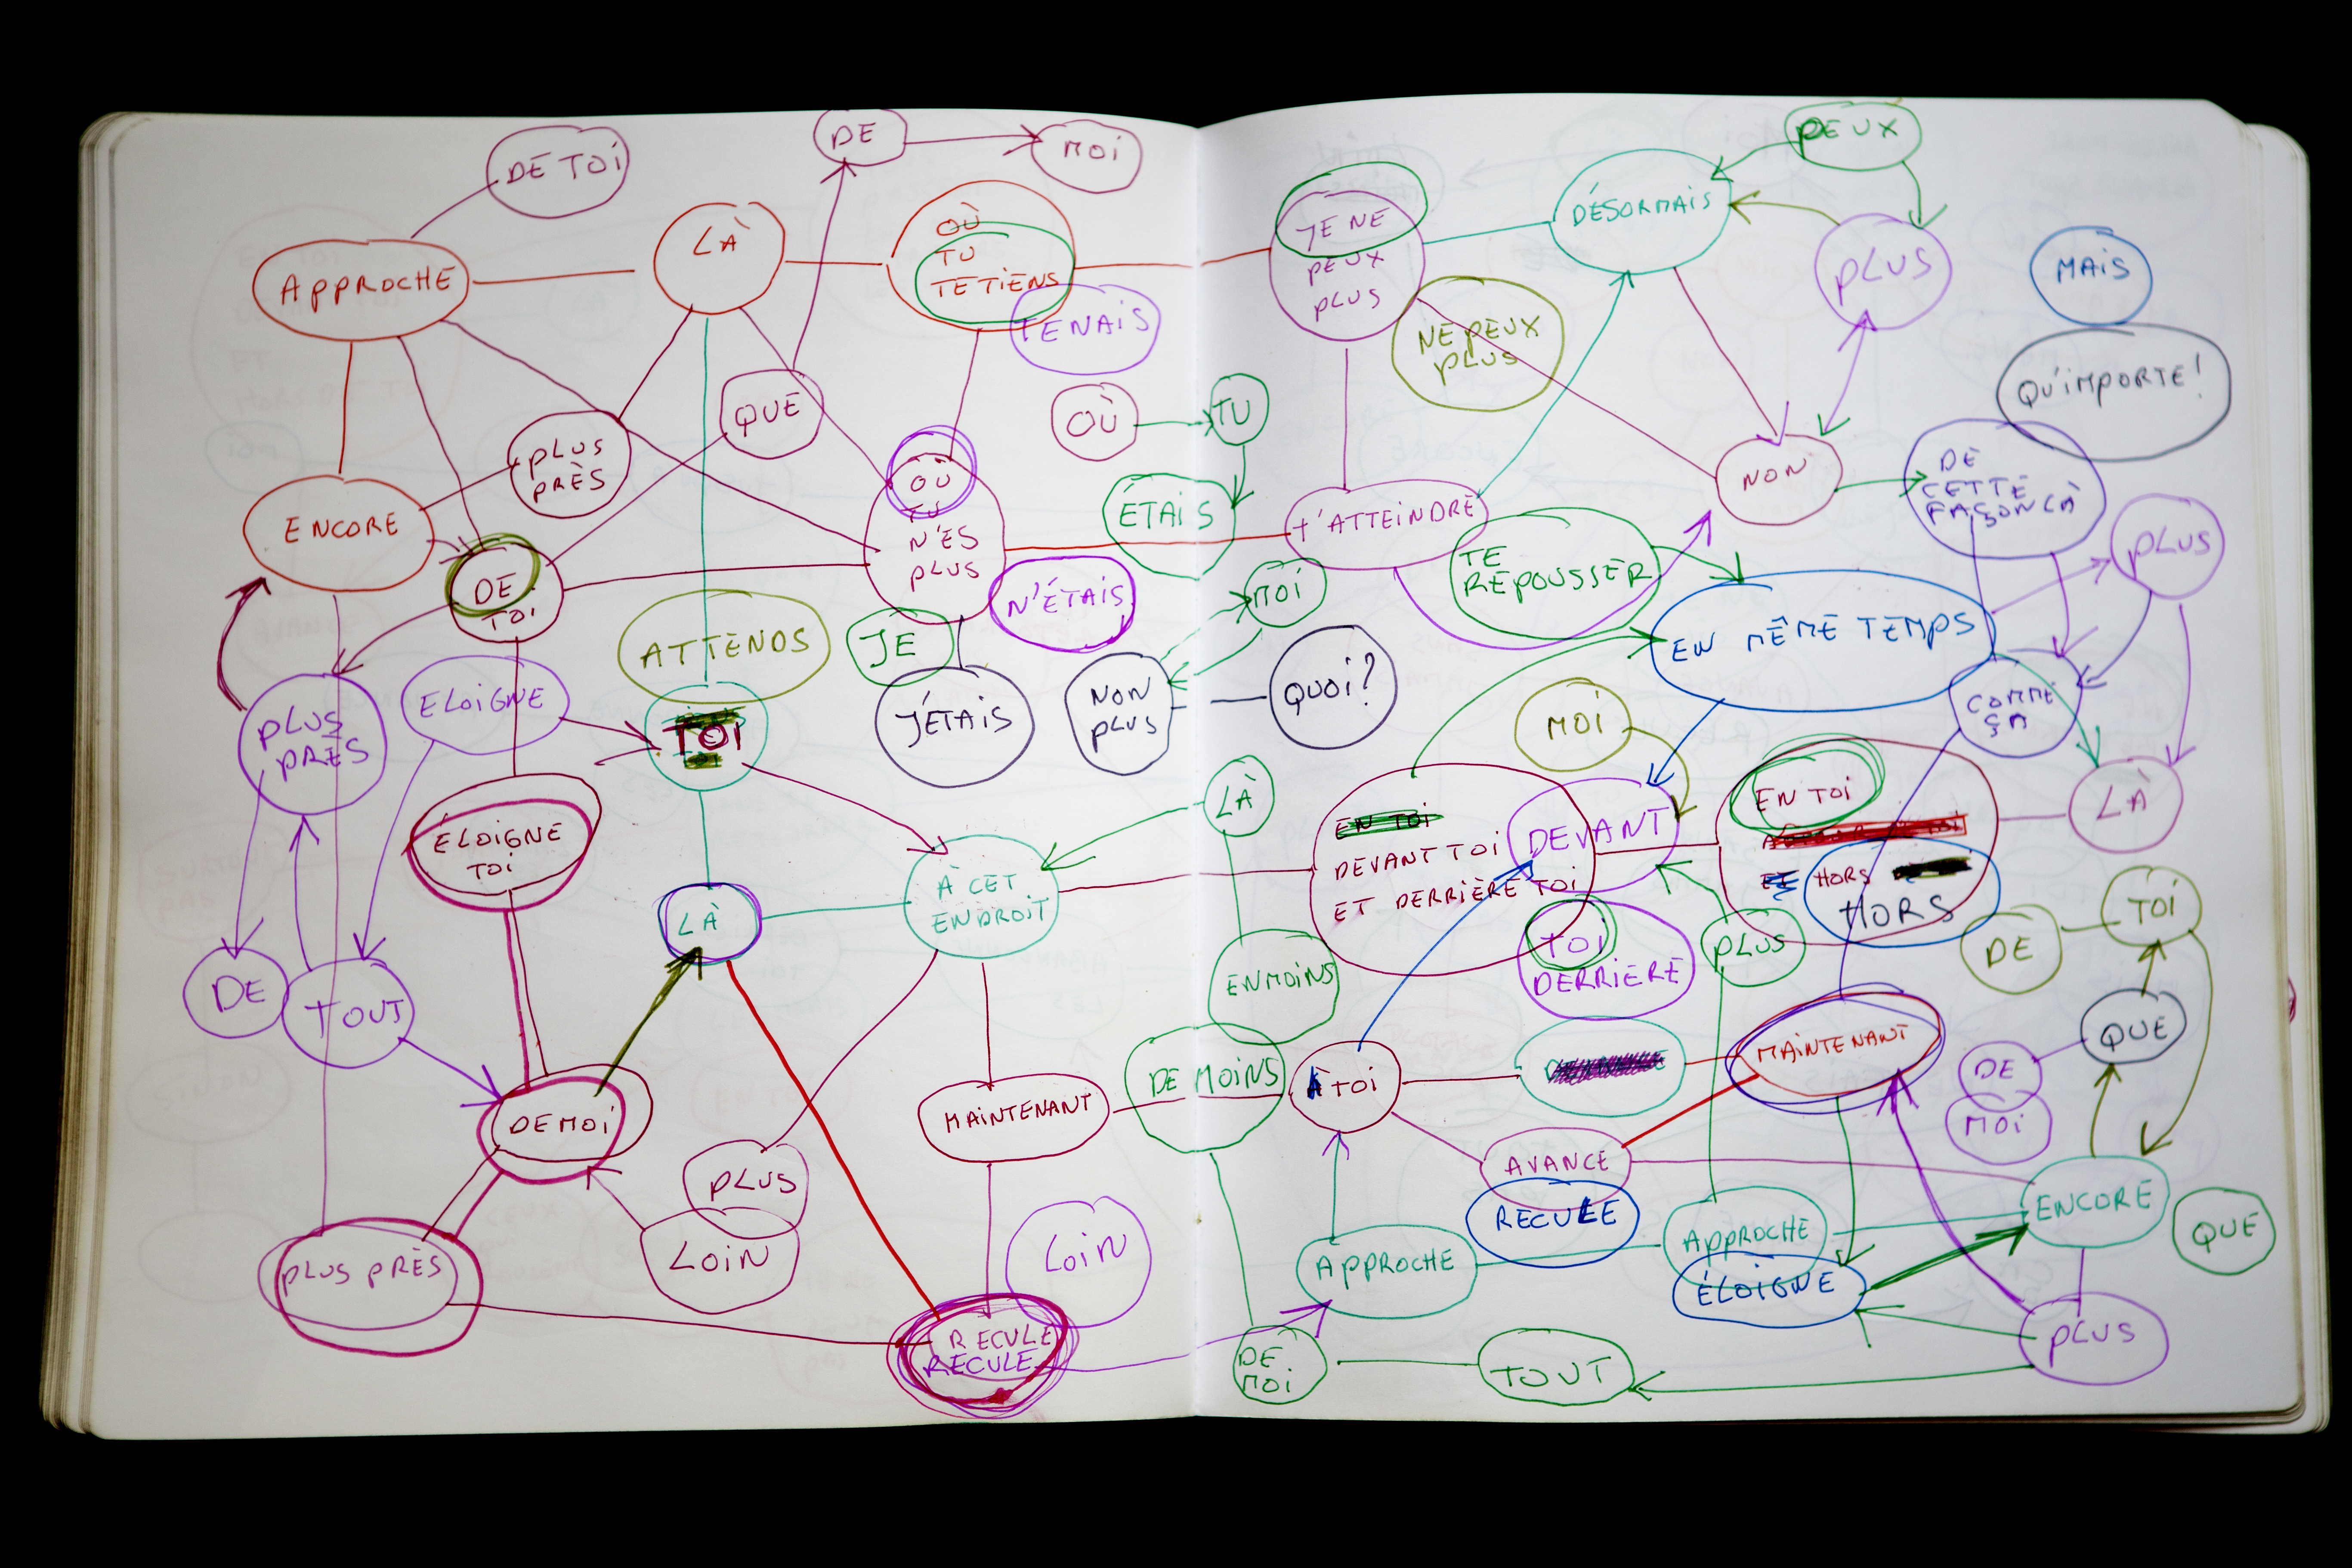 DE TOI
DE
MOI
APPROCHE
LÀ
OÙ
TU
TE TIENS
TENAIS
QUE
OÙ
TU
PLUS
PRÈS
ENCORE
OÙ
TU
N'ES
PLUS
ÉTAIS
DE
TOI
N'ÉTAIS
MOI
ATTENDS
JE
ELOIGNE
PLUS
PRÈS
TOI
J'ÉTAIS
NON
PLUS
QUOI?
ÉLOIGNE
TOI
LÀ
À CET
ENDROIT
LÀ
DE
TOUT
EN MOINS
DE MOI
MAINTENANT
DE MOINS
PLUS
LOIN
PLUS PRÈS
LOIN
RECULE
RECULE
DE
MOI
PEUX
JE NE
PEUX
PLUS
DÉSORMAIS
PLUS
MAIS
NE PEUX
PLUS
QU'IMPORTE!
NON
DE
CETTE
FAÇON LÀ
T'ATTEINDRE
PLUS
TE
REPOUSSER
EN MÊME TEMPS
MOI
COMME
ÇA
LÀ
EN TOI
DEVANT TOI
ET DERRIÈRE TOI
DEVANT
EN TOI
ET HORS
HORS
TOI
DERRIÈRE
PLUS
DE
TOI
QUE
MAINTENANT
DE
MOI
À TOI
AVANCE
RECULE
APPROCHE
APPROCHE
ÉLOIGNE
ENCORE
QUE
PLUS
TOUT